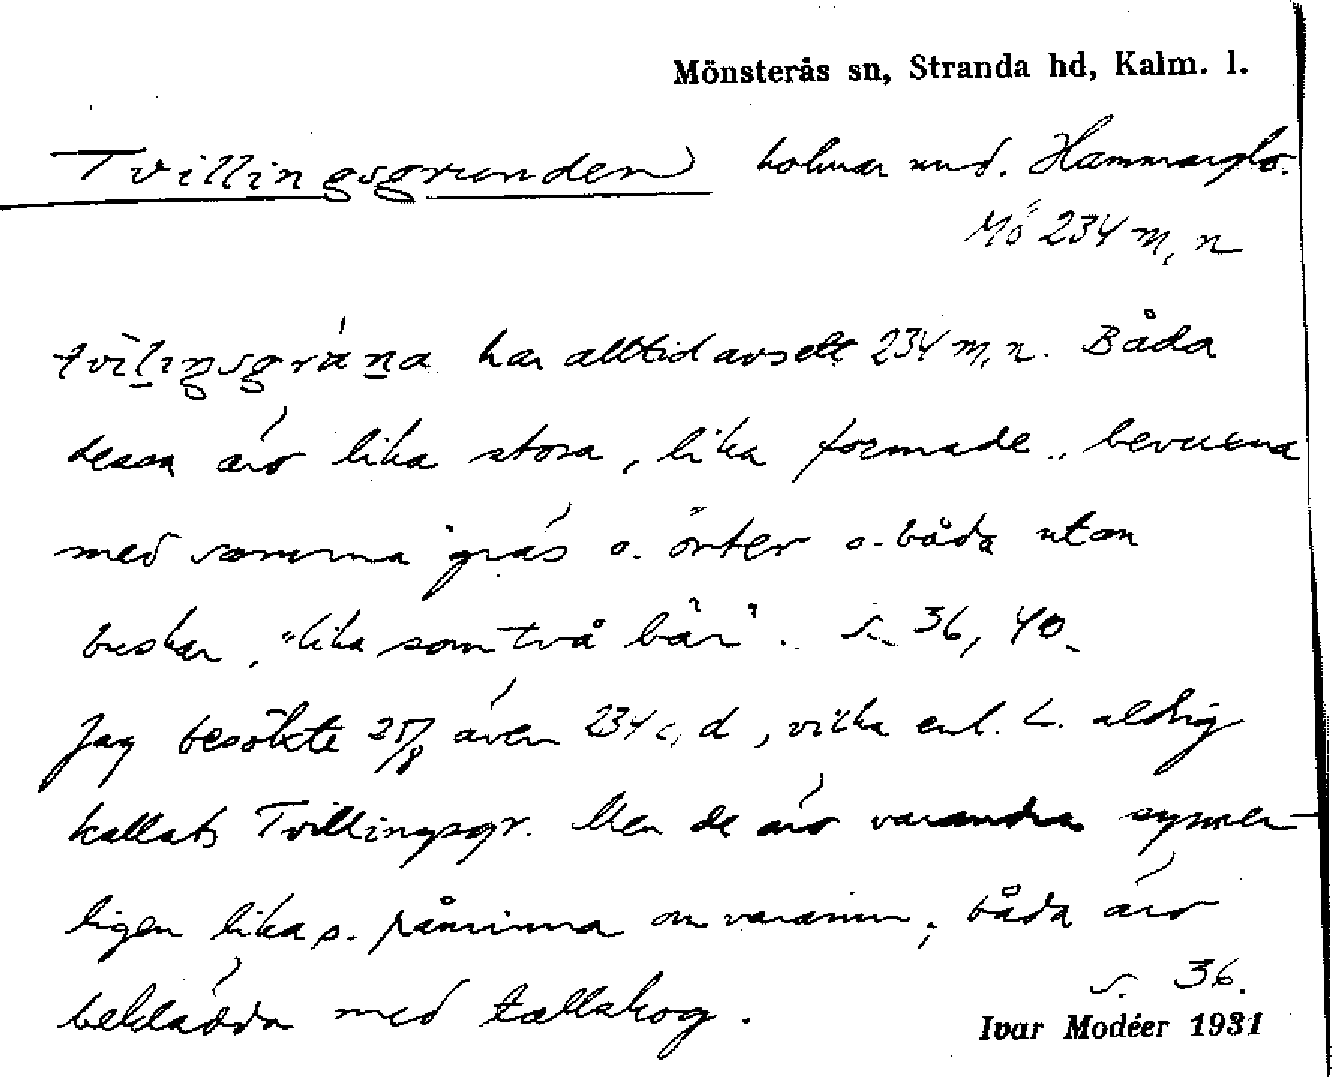 Mönsterås sn, Stranda hd, Kalm. l.
Tvillingsgrunden holmar und. Hammarglo.
Mö 234 m, n
tvilingsgrána har alltid avsett 234 m, n. Båda
dessa äro lika stora, lika formade, bevuxna
med samma gräs o. örter o. båda utan
buskar, "lika som två bär". s. 36, 40.
Jag besökte 25/8 även 234 c, d, vilka enl. L. aldrig
kallats Tvillingsgr. Men de äro varandra synner-
ligen lika o. påminna om varann; båda äro
beklädda med tallskog. s. 36.
Ivar Modéer 1931